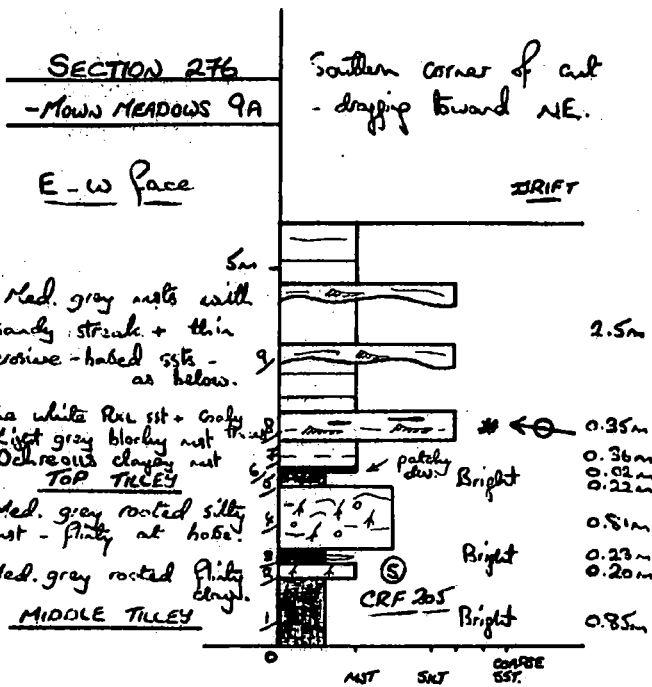 SECTION 276
- MOWN MEADOWS 9A
E-W face
Southern corner of cut
- dragging toward NE.
DRIFT
5m
Med. grey msts with
sandy streak + thin
erosive-based ssts -
as below.
9
2.5m
white RXL sst + Coaly
8
0.35m
Light grey blocky mst
7
0.36m
Ochreous clayey mst
6
patchy
0.02m
TOP TILLEY
5
Bright
0.22m
Med. grey rooted silty
mst - flinty at base.
4
0.81m
3
Bright
0.23m
Med. grey rooted flinty
clays.
2
5
0.20m
CRF 205
MIDDLE TILLEY
1
Bright
0.85m
0
MST
SLT
COARSE
SST.